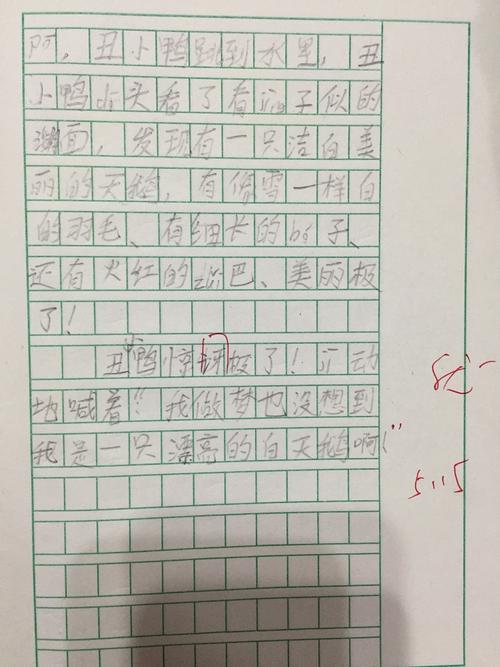 阿，丑小鸭跳到水里，丑
小鸭di头看了看jing子似的
湖面，发现有一只洁白美
丽的天鹅，有像雪一样白
的羽毛、有细长的bó子、
还有火红的zuǐ巴、美丽极
了！
丑小鸭惊讶极了！ji动
地喊着：“我做梦也没想到
我是一只漂亮的白天鹅啊！”
5.15